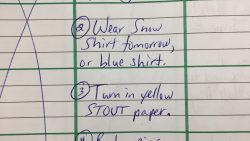 ② Wear Snow
Shirt tomorrow,
or blue shirt.
③ Turn in yellow
STOUT paper.